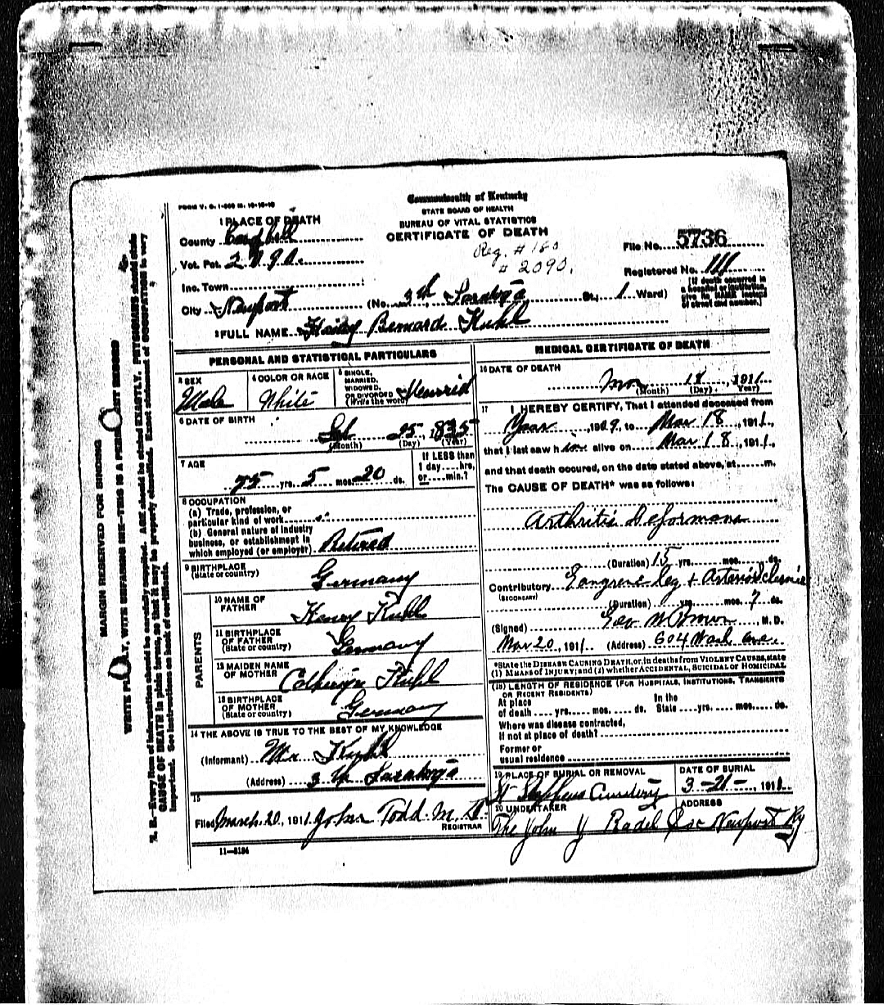 FORM V. S. 1-
Commonwealth of Kentucky
STATE BOARD OF HEALTH
BUREAU OF VITAL STATISTICS
CERTIFICATE OF DEATH
1 PLACE OF DEATH
County Campbell
Vot. Pct.
Inc. Town
City Newport (No. 3th Saratoga St., 1 Ward)
Reg. # 160
# 2090.
File No. 5736
Registered No. 111
(If death occurred in a hospital or institution, give its NAME instead of street and number.)
2 FULL NAME Bernard Kuhl
PERSONAL AND STATISTICAL PARTICULARS
3 SEX Male
4 COLOR OR RACE White
5 SINGLE, MARRIED, WIDOWED, OR DIVORCED (Write the word) Married
6 DATE OF BIRTH
25, 1835
(Month) (Day) (Year)
7 AGE
75 yrs. 5 mos. 20 ds.
If LESS than 1 day....hrs. or....min.?
8 OCCUPATION
(a) Trade, profession, or particular kind of work
(b) General nature of industry business, or establishment in which employed (or employer) Retired
9 BIRTHPLACE (State or country) Germany
PARENTS
10 NAME OF FATHER Henry Kuhl
11 BIRTHPLACE OF FATHER (State or country) Germany
12 MAIDEN NAME OF MOTHER
13 BIRTHPLACE OF MOTHER (State or country) Germany
14 THE ABOVE IS TRUE TO THE BEST OF MY KNOWLEDGE
(Informant) Mr Kuhl
(Address) 3 th Saratoga
15
Filed March 20, 1911 John Todd M.D.
REGISTRAR
11-3184
MEDICAL CERTIFICATE OF DEATH
16 DATE OF DEATH
Mar 18, 1911
(Month) (Day) (Year)
17 I HEREBY CERTIFY, That I attended deceased from
Year, 1909, to Mar 18, 1911,
that I last saw him alive on Mar 18, 1911,
and that death occured, on the date stated above, at....m.
The CAUSE OF DEATH* was as follows:
Arthritis Deformans
(Duration) 15 yrs. mos. ds.
Contributory Gangrene leg + Arteriosclerosis
(SECONDARY)
(Duration) yrs. mos. 7 ds.
(Signed) Geo M M. D.
Mar 20, 1911 (Address) 604 Wash Ave.
*State the DISEASE CAUSING DEATH, or, in deaths from VIOLENT CAUSES, state
(1) MEANS OF INJURY; and (2) whether ACCIDENTAL, SUICIDAL or HOMICIDAL.
(18) LENGTH OF RESIDENCE (FOR HOSPITALS, INSTITUTIONS, TRANSIENTS OR RECENT RESIDENTS)
At place of death....yrs....mos....ds. In the State....yrs....mos....ds.
Where was disease contracted, if not at place of death?
Former or usual residence
19 PLACE OF BURIAL OR REMOVAL
St Stephens Cemetery
DATE OF BURIAL
3-21-, 1911
20 UNDERTAKER
The John Radel Co
ADDRESS
Newport Ky
MARGIN RESERVED FOR BINDING
WRITE PLAINLY, WITH UNFADING INK—THIS IS A PERMANENT RECORD
N. B.—Every item of information should be carefully supplied. AGE should be stated EXACTLY. PHYSICIANS should state
CAUSE OF DEATH in plain terms, so that it may be properly classified. Exact statement of OCCUPATION is very
important. See instructions on back of certificate.